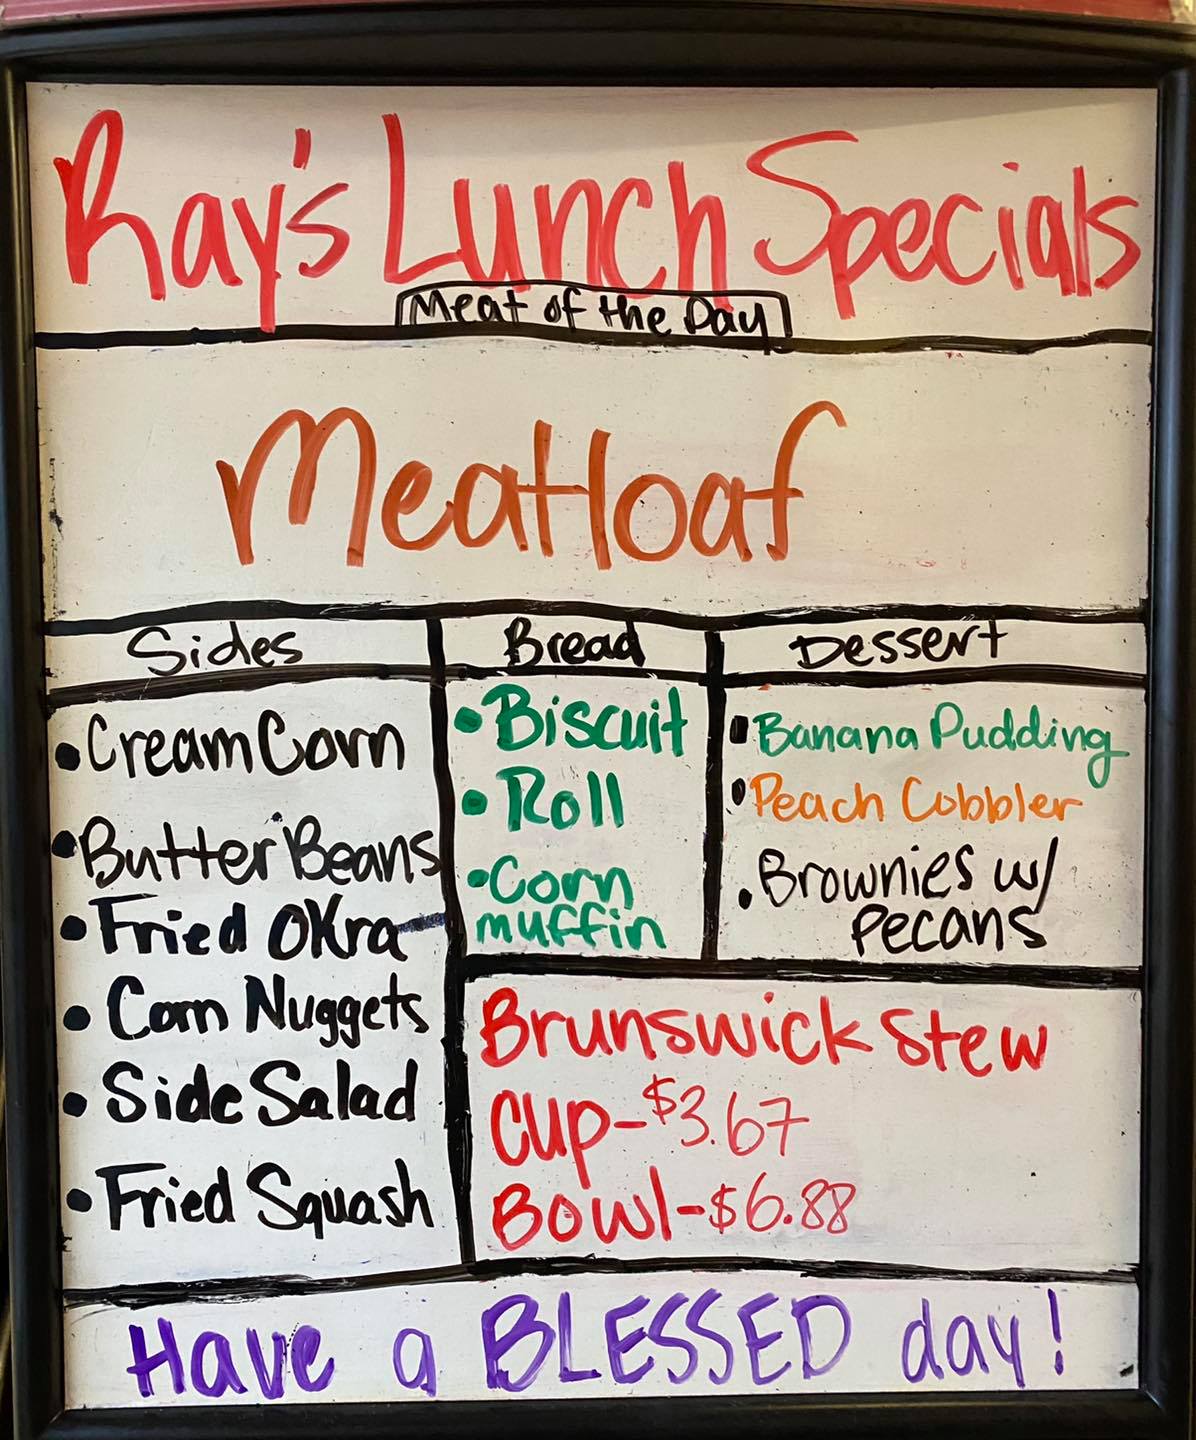 Ray's Lunch Specials
Meat of the Day
Meatloaf
Sides
• Cream Corn
• Butter Beans
• Fried Okra
• Corn Nuggets
• Side Salad
• Fried Squash
Bread
• Biscuit
• Roll
• Corn
muffin
Dessert
• Banana Pudding
• Peach Cobbler
• Brownies w/
pecans
Brunswick Stew
Cup-$3.67
Bowl-$6.88
Have a BLESSED day!